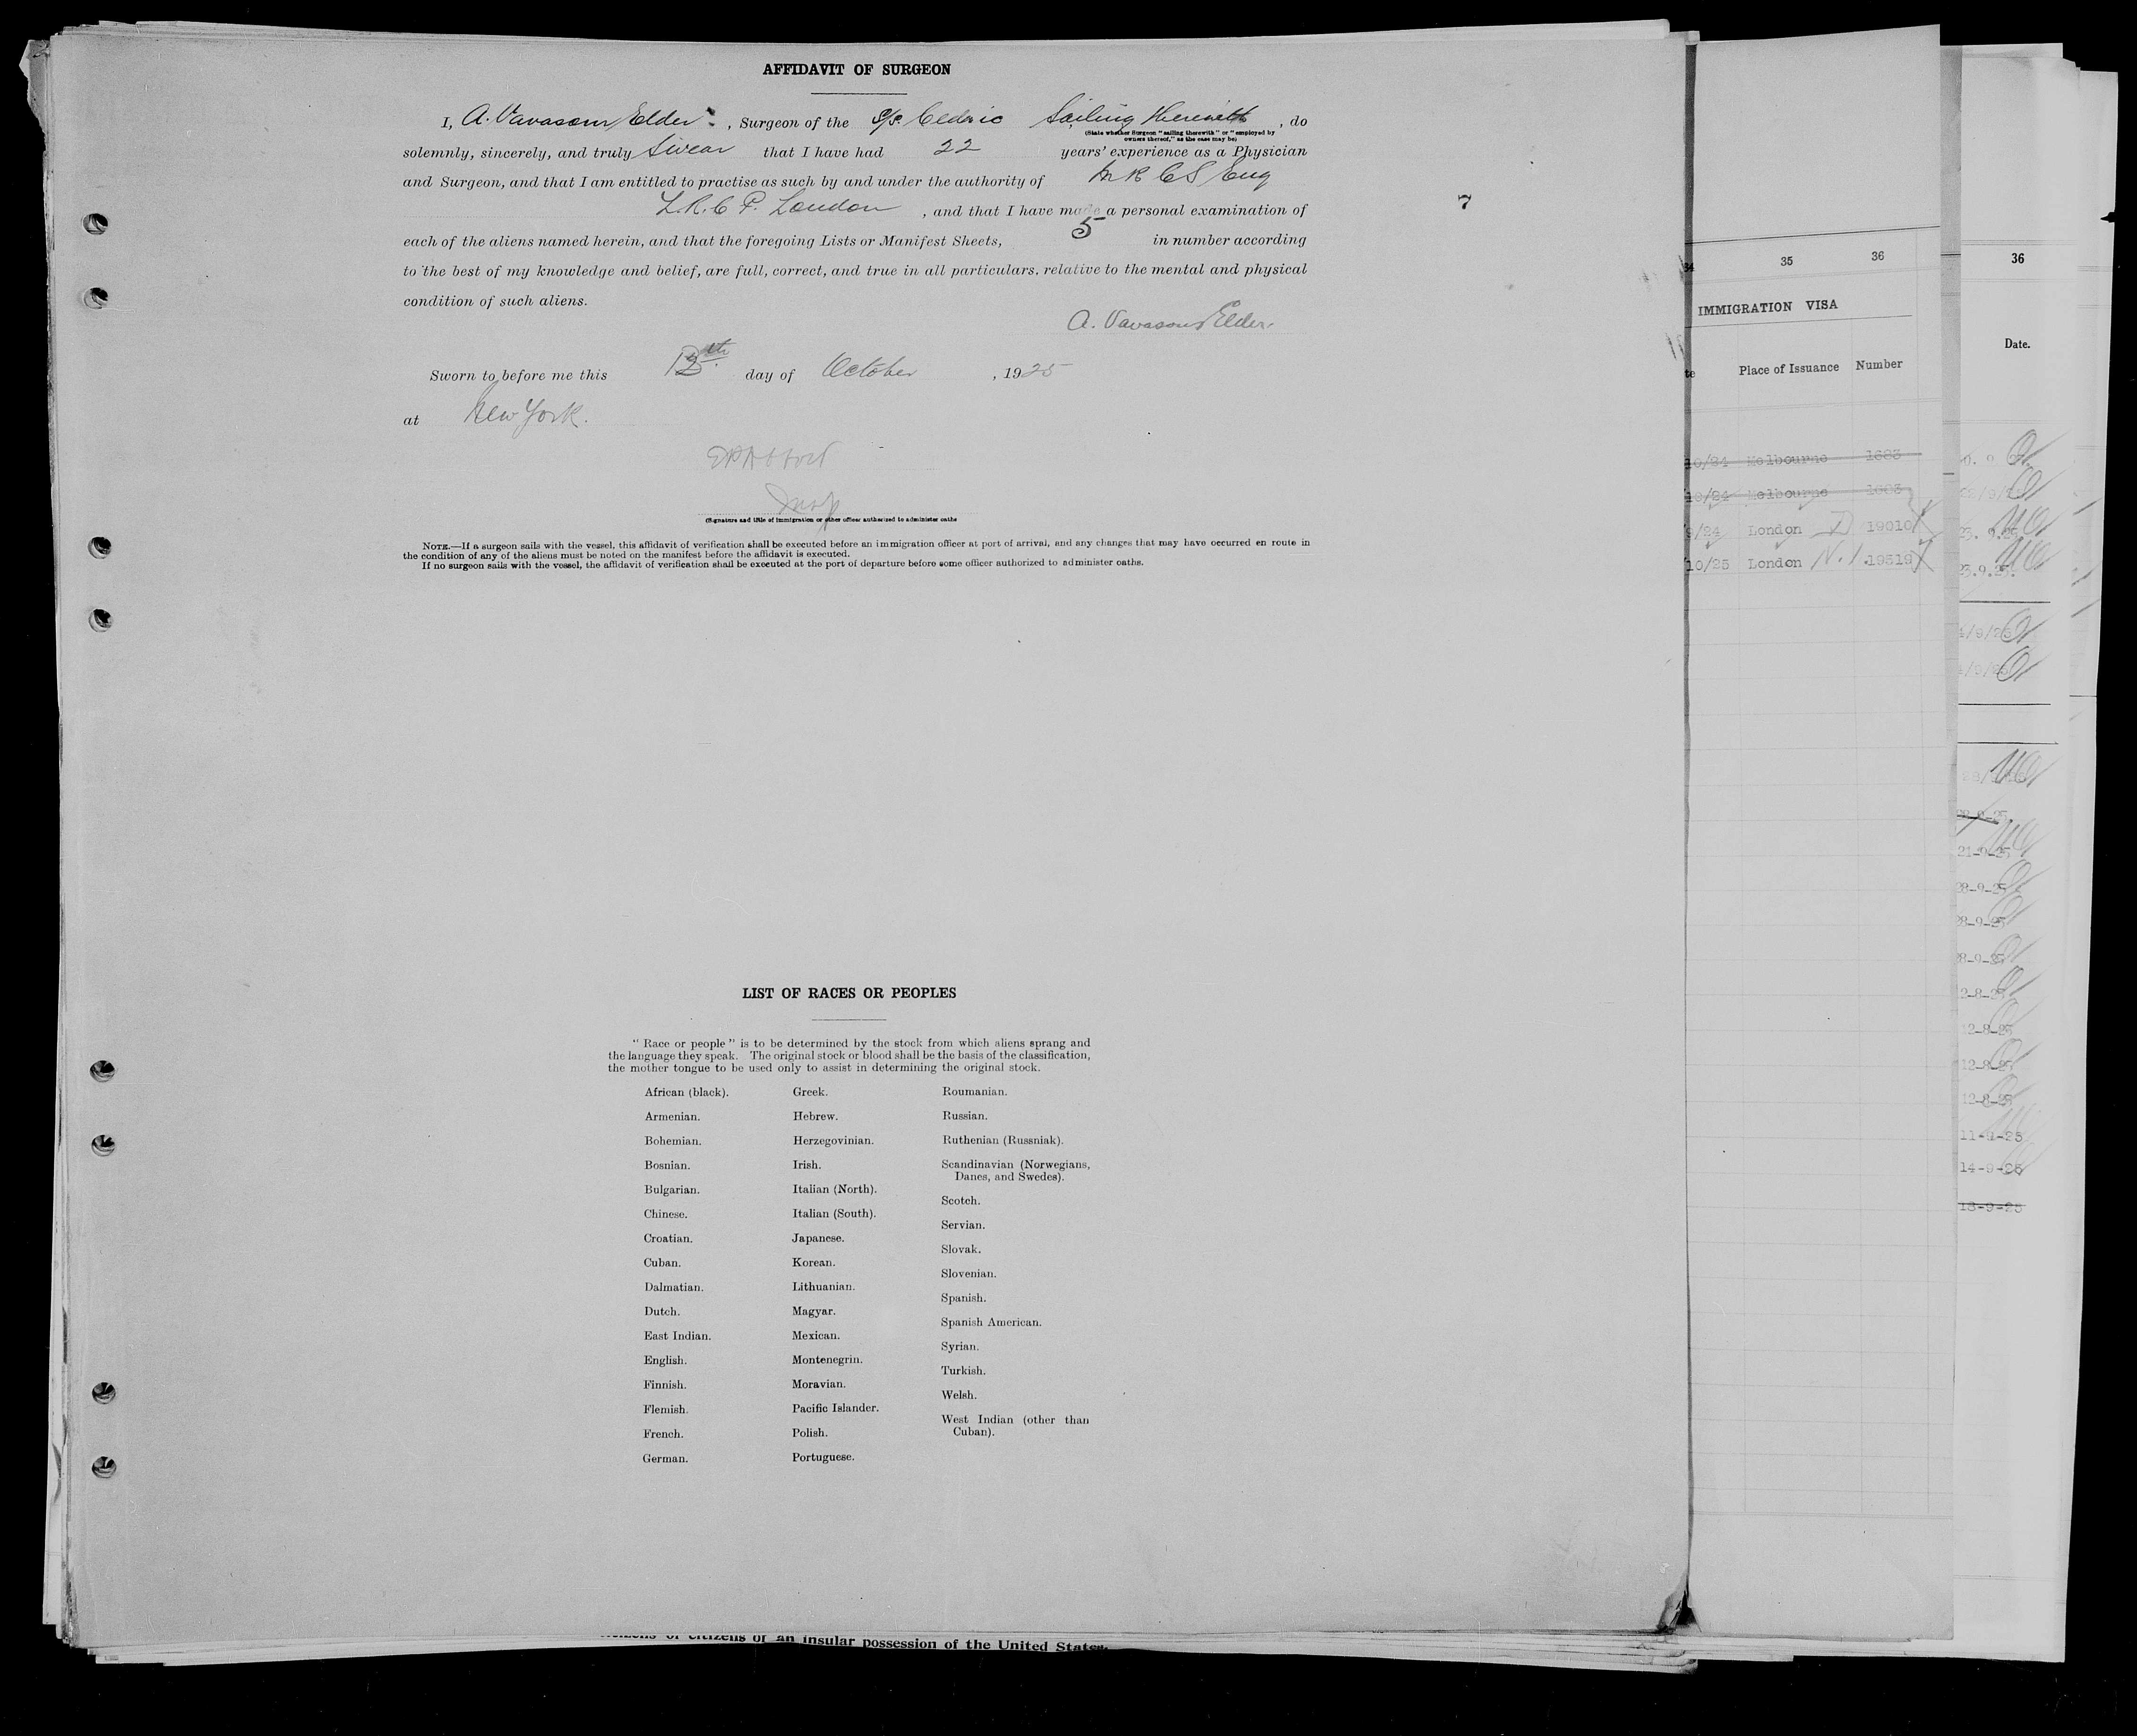 AFFIDAVIT OF SURGEON
I, A. Vavasour Elder, Surgeon of the S/S. Cedric Sailing therewith, do
(State whether Surgeon "sailing therewith" or "employed by
owners thereof," as the case may be)
solemnly, sincerely, and truly Swear that I have had 22 years' experience as a Physician
and Surgeon, and that I am entitled to practise as such by and under the authority of M R C S Eng
L.R.C P. London, and that I have made a personal examination of
each of the aliens named herein, and that the foregoing Lists or Manifest Sheets, 5 in number according
to the best of my knowledge and belief, are full, correct, and true in all particulars, relative to the mental and physical
condition of such aliens.
A. Vavasour Elder.
Sworn to before me this th day of October, 1925
at New York.
Insp
(Signature and title of immigration or other officer authorized to administer oaths
NOTE.—If a surgeon sails with the vessel, this affidavit of verification shall be executed before an immigration officer at port of arrival, and any changes that may have occurred en route in
the condition of any of the aliens must be noted on the manifest before the affidavit is executed.
If no surgeon sails with the vessel, the affidavit of verification shall be executed at the port of departure before some officer authorized to administer oaths.
7
LIST OF RACES OR PEOPLES
"Race or people" is to be determined by the stock from which aliens sprang and
the language they speak. The original stock or blood shall be the basis of the classification,
the mother tongue to be used only to assist in determining the original stock.
African (black).
Armenian.
Bohemian.
Bosnian.
Bulgarian.
Chinese.
Croatian.
Cuban.
Dalmatian.
Dutch.
East Indian.
English.
Finnish.
Flemish.
French.
German.
Greek.
Hebrew.
Herzegovinian.
Irish.
Italian (North).
Italian (South).
Japanese.
Korean.
Lithuanian.
Magyar.
Mexican.
Montenegrin.
Moravian.
Pacific Islander.
Polish.
Portuguese.
Roumanian.
Russian.
Ruthenian (Russniak).
Scandinavian (Norwegians,
Danes, and Swedes).
Scotch.
Servian.
Slovak.
Slovenian.
Spanish.
Spanish American.
Syrian.
Turkish.
Welsh.
West Indian (other than
Cuban).
citizens of an insular possession of the United States.
34 35 36
IMMIGRATION VISA
Place of Issuance Number
10/24 Melbourne 1683
10/24 Melbourne 1683
9/24 London 19010
10/25 London N.I. 19519
36
Date.
23.9.25.
23.9.25.
21-9-25
28-9-25
28-9-25
28-9-25
12-8-25
12-8-25
12-8-25
11-9-25
14-9-25
18-9-25